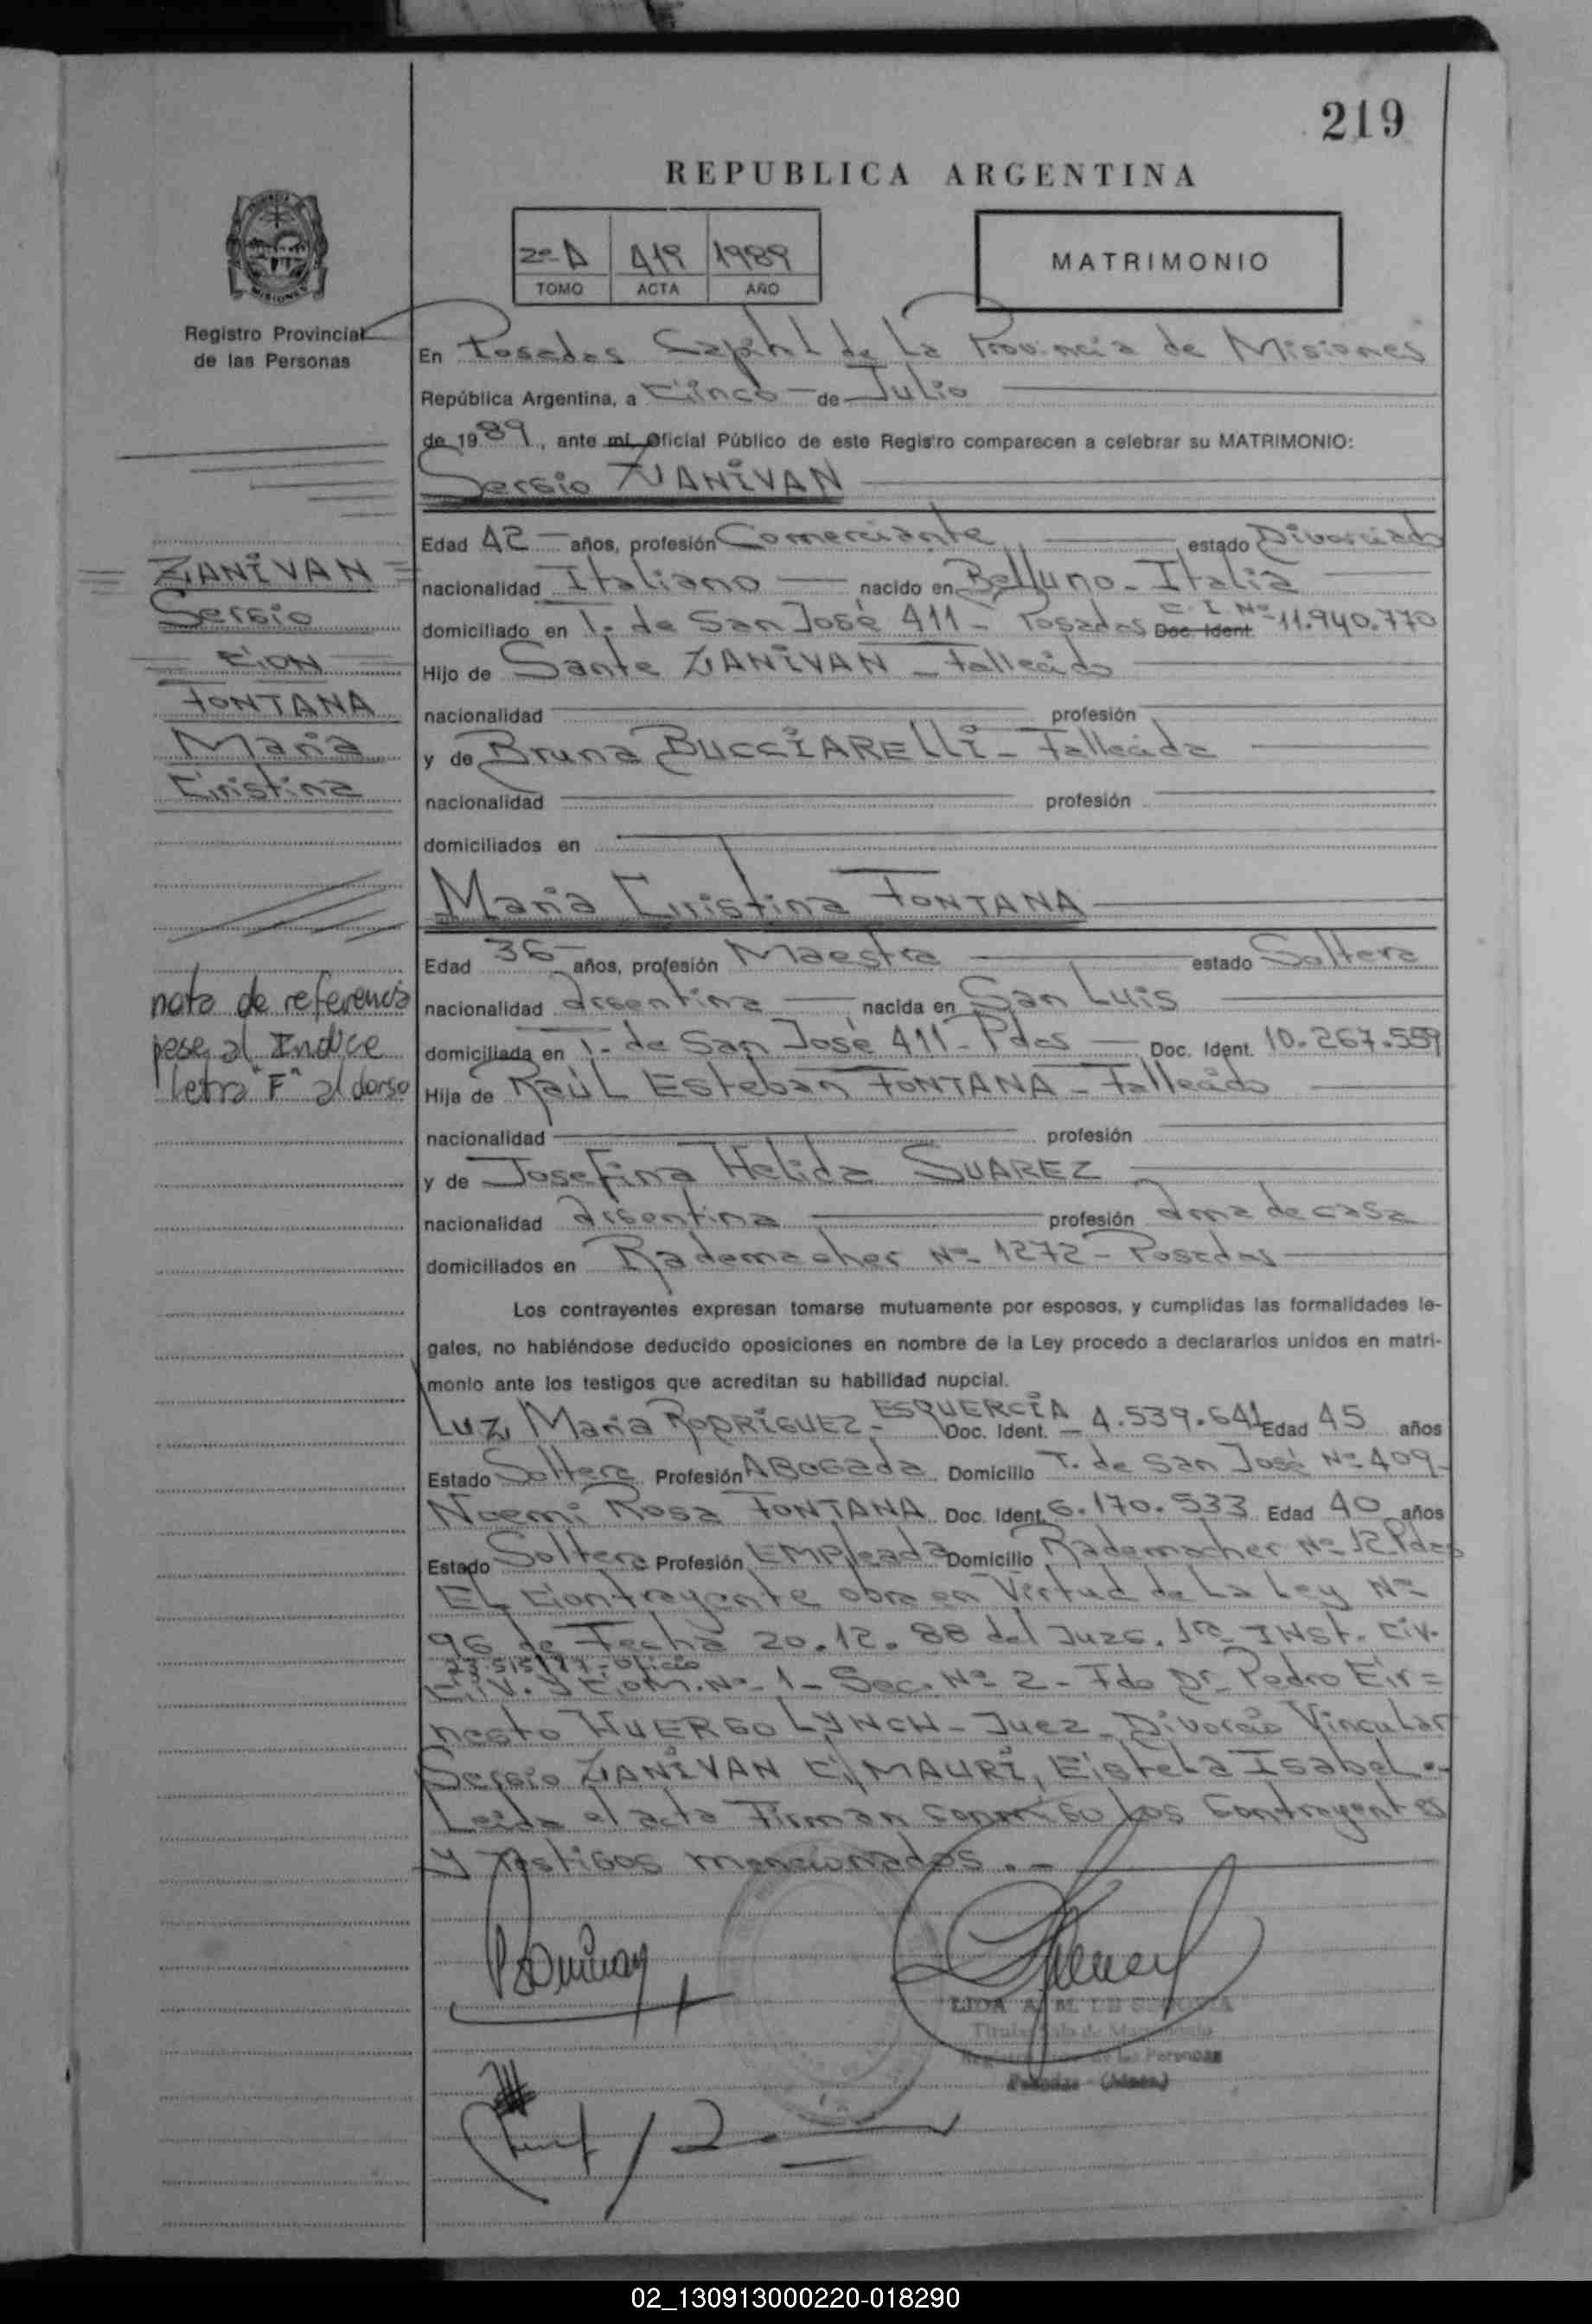 219
REPUBLICA ARGENTINA
2º A 419 1989
TOMO ACTA AÑO
MATRIMONIO
MISIONES
Registro Provincial
de las Personas
En Posadas Capital de La Provincia de Misiones
República Argentina, a Cinco de Julio
de 1989, ante mí, Oficial Público de este Registro comparecen a celebrar su MATRIMONIO:
Sergio ZANIVAN
Edad 42 años, profesión Comerciante estado Divorciado
nacionalidad Italiano nacido en Belluno - Italia
domiciliado en T. de San José 411 - Posadas Doc Ident C.I Nº 11.940.770
Hijo de Sante ZANIVAN - Fallecido
nacionalidad profesión
y de Bruna BUCCIARELLI - Fallecida
nacionalidad profesión
domiciliados en
María Cristina FONTANA
Edad 36 años, profesión Maestra estado Soltera
nacionalidad argentina nacida en San Luis
domiciliada en T. de San José 411 - Pdas Doc. Ident. 10.267.559
Hija de Raúl Esteban FONTANA - Fallecido
nacionalidad profesión
y de Josefina Helida SUAREZ
nacionalidad argentina profesión ama de casa
domiciliados en Rademacher Nº 1272 - Posadas
Los contrayentes expresan tomarse mutuamente por esposos, y cumplidas las formalidades le-
gales, no habiéndose deducido oposiciones en nombre de la Ley procedo a declararlos unidos en matri-
monio ante los testigos que acreditan su habilidad nupcial.
Luz María RODRIGUEZ - ESQUERCIA Doc. Ident. 4.539.641 Edad 45 años
Estado Soltera Profesión ABOGada Domicilio T. de San José Nº 409
Noemi Rosa FONTANA Doc. Ident. 6.170.533 Edad 40 años
Estado Soltera Profesión EMPleada Domicilio Rademacher Nº 12 Pdas
El Contrayente obra en Virtud de La Ley Nº
23.515/87 - Oficio
96 de Fecha 20.12.88 del Juzg. 1ra INst. Civ.
Civ. y Com. Nº 1 - Sec. Nº 2 - Fdo Dr Pedro Er=
nesto HUERGO LYNCH - Juez - Divorcio Vincular
Sergio ZANIVAN C/ MAURI, Estela Isabel.-
Leída el acta Firman conmigo los Contrayentes
y testigos mencionados.-
LIDA A. M. DE
Titular Sala de Matrimonio
de las Personas
Posadas - (Mnes.)
ZANIVAN
Sergio
CON
FONTANA
María
Cristina
nota de referencia
pese al Indice
letra "F" al dorso
02_130913000220-018290